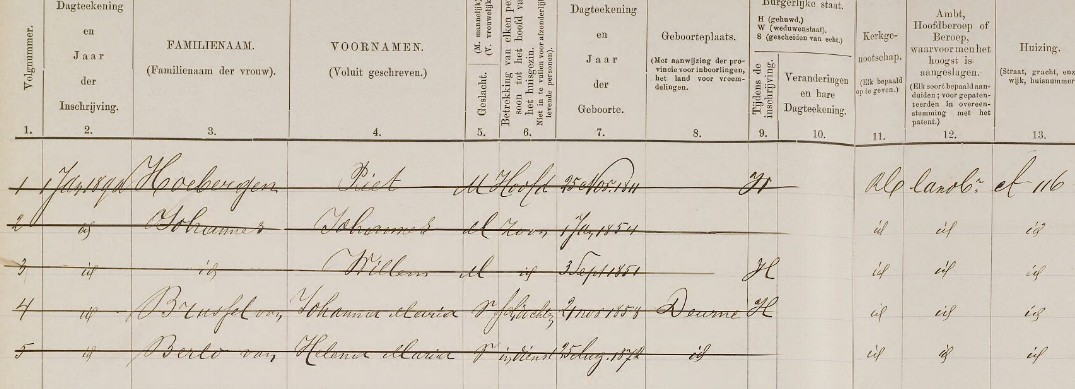 Volgnummer.
Dagteekening en Jaar der Inschrijving.
FAMILIENAAM.
(Familienaam der vrouw).
VOORNAMEN.
(Voluit geschreven.)
Geslacht. (M. mannelijk) (V. vrouwelijk)
het huisgezin.
Niet in te vullen voor afzonderlijk levende personen).
Dagteekening en Jaar der Geboorte.
Geboorteplaats.
(Met aanwijzing der provincie voor inboorlingen, het land voor vreemdelingen.
Burgerlijke staat.
H (gehuwd,)
W (weduwenstaat),
S (gescheiden van echt.)
Tijdens de inschrijving.
Veranderingen en hare Dagteekening.
Kerkgenootschap.
(Elk bepaald op te geven.)
Ambt, Hoofdberoep of Beroep, waarvoor men het hoogst is aangeslagen.
(Elk soort bepaald aanduiden; voor gepatenteerden in overeenstemming met het patent.)
Huizing.
(Straat, gracht, enz. wijk, huisnummer
1. 2. 3. 4. 5. 6. 7. 8. 9. 10. 11. 12. 13.
1 Hoebergen Piet M Hoofd 25 Nov. 1811 H landbr 116
2 id Johannes Johannes M zoon 1 1854 id id id
3 id id Willem M id 3 Sept 1851 H id id id
4 id Brussel van Johanna Maria 1858 Deurne H id id id
5 id Berlo van Helena Maria in dienst 25 Aug. 187 id id id id